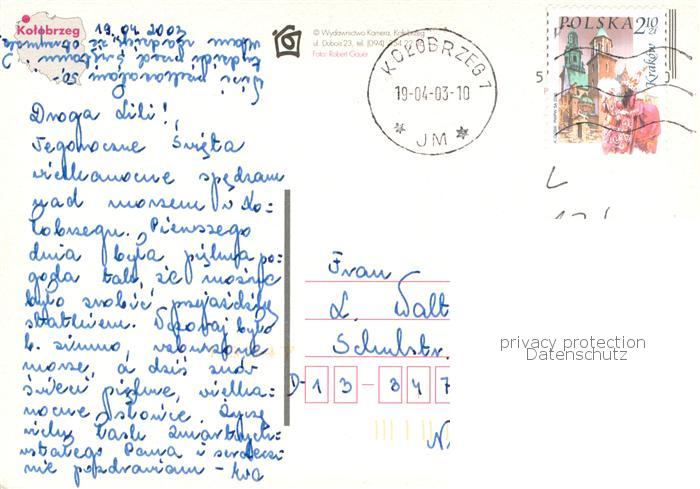 Kołobrzeg 19.04 2003
© Wydawnictwo Kamera, Kołobrzeg
ul. Dubois 23, tel. (094)
Foto: Robert Gauer
KOŁOBRZEG 1
19-04-03-10
JM
POLSKA 2,10 zł
Kraków
Droga Lili!
Tegoroczne Święta
wielkanocne spędzam
nad morzem w Ko=
łobrzegu. Pierwszego
dnia była piękna po-
goda tak, że można
było zrobić przejażdżkę
statkiem. Wczoraj było
b. zimno, wzburzone
morze, a dziś znów
świeci piękne, wielka-
nocne słońce. Życzę
wielu łask Zmartwych-
wstałego Pana i serdecz-
nie pozdrawiam - 
Frau
L. Walt
Schulstr.
D-13-347
N
privacy protection
Datenschutz